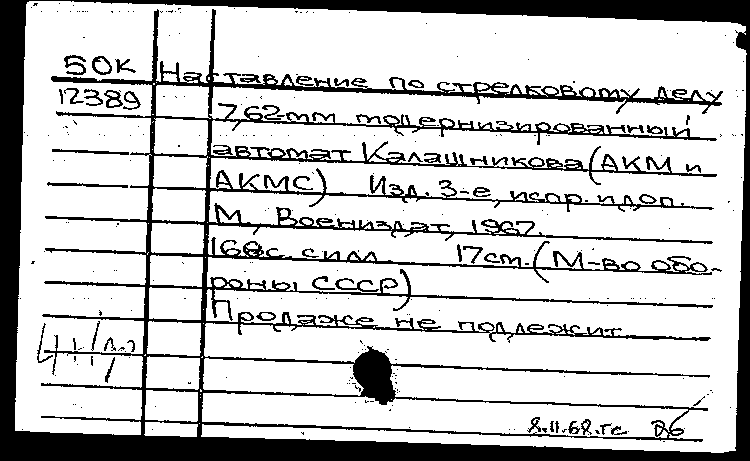 50K Наставление по стрелковому делу
12389 7,62mm модернизированный
автомат Калашникова (АКМ и
АКМС). Изд. 3-е, испр. и доп.
М., Воениздат, 1967.
160с. с илл. 17cm. (М-во обо-
роны СССР)
Продаже не подлежит
8.11.68.тс